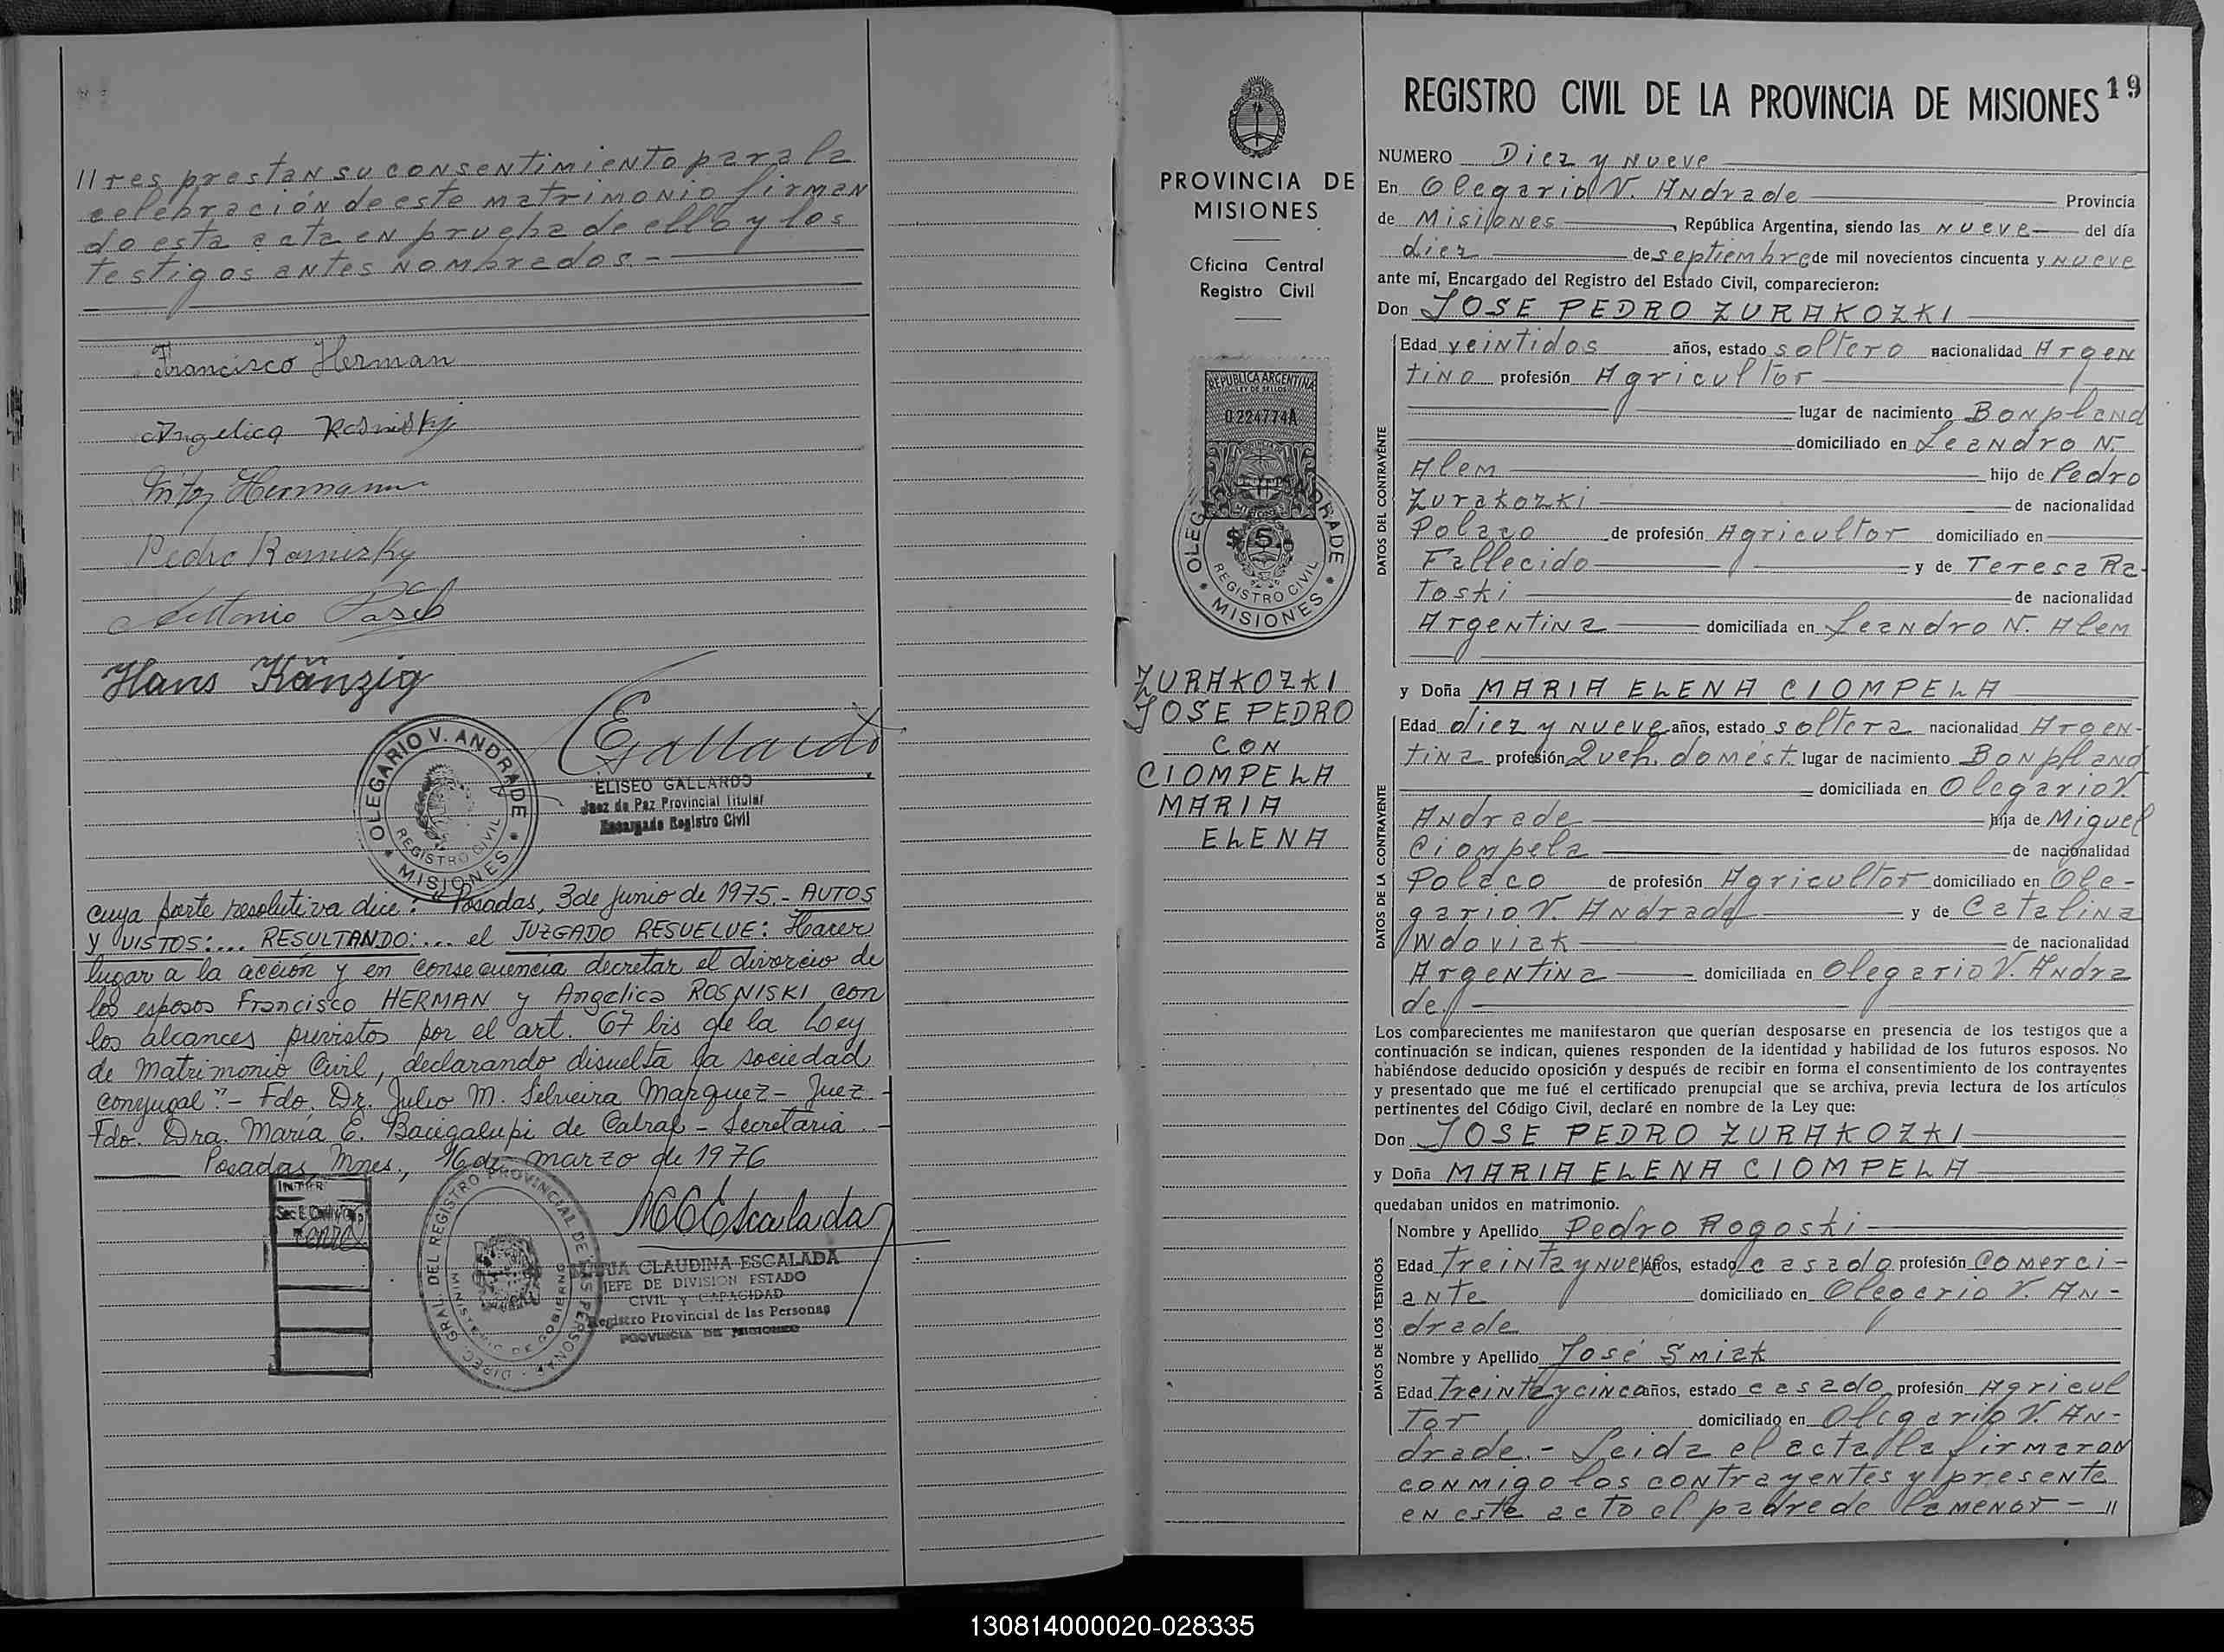 //res prestan su consentimiento para la
celebración de este matrimonio firman
do esta acta en prueba de ello y los
testigos antes nombrados.-
Francisco Herman
Angelica Rosnisky
Fritz Hermann
Pedro
Antonio
Hans Känzig
Gallardo
OLEGARIO V. ANDRADE
REGISTRO CIVIL
* MISIONES *
ELISEO GALLARDO
Juez de Paz Provincial Titular
Encargado Registro Civil
cuya parte resolutiva dice: "Posadas, 3 de Junio de 1975.- AUTOS
Y VISTOS:... RESULTANDO:... el JUZGADO RESUELVE: Hacer
lugar a la acción y en consecuencia decretar el divorcio de
los esposos Francisco HERMAN y Angelica ROSNISKI con
los alcances previstos por el art. 67 bis de la Ley
de Matrimonio Civil, declarando disuelta la sociedad
conyugal".- Fdo. Dr. Julio M. Silveira Marquez - Juez.-
Fdo. Dra. María E. Bacigalupi de Cabral - Secretaria.-
Posadas, Mnes., 16 de marzo de 1976
MCEscalada
MARIA CLAUDINA ESCALADA
JEFE DE DIVISION ESTADO
CIVIL Y CAPACIDAD
Registro Provincial de las Personas
PROVINCIA DE MISIONES
DIREC. GRAL. DEL REGISTRO PROVINCIAL DE LAS PERSONAS
MINISTERIO DE GOBIERNO
PROVINCIA DE
MISIONES
Oficina Central
Registro Civil
REPUBLICA ARGENTINA
LEY DE SELLOS
0.224774A
$ 5.
OLEGARIO V. ANDRADE
REGISTRO CIVIL
* MISIONES *
ZURAKOZKI
JOSE PEDRO
CON
CIOMPELA
MARIA
ELENA
REGISTRO CIVIL DE LA PROVINCIA DE MISIONES 19
NUMERO Diez y nueve
En Olegario V. Andrade Provincia
de Misiones, República Argentina, siendo las nueve del día
diez de septiembre de mil novecientos cincuenta y nueve
ante mí, Encargado del Registro del Estado Civil, comparecieron:
Don JOSE PEDRO ZURAKOZKI
DATOS DEL CONTRAYENTE
Edad veintidos años, estado soltero nacionalidad Argen
tino profesión Agricultor
lugar de nacimiento Bonpland
domiciliado en Leandro N.
Alem hijo de Pedro
Zurakozki de nacionalidad
Polaco de profesión Agricultor domiciliado en
Fallecido y de Teresa Ra-
toski de nacionalidad
Argentina domiciliada en Leandro N. Alem
y Doña MARIA ELENA CIOMPELA
DATOS DE LA CONTRAYENTE
Edad diez y nueve años, estado soltera nacionalidad Argen-
tina profesión Queh. domést. lugar de nacimiento Bonpland
domiciliada en Olegario V.
Andrade hija de Miguel
Ciompela de nacionalidad
Polaco de profesión Agricultor domiciliado en Ole-
gario V. Andrade y de Catalina
Wdoviak de nacionalidad
Argentina domiciliada en Olegario V. Andra
de.
Los comparecientes me manifestaron que querían desposarse en presencia de los testigos que a
continuación se indican, quienes responden de la identidad y habilidad de los futuros esposos. No
habiéndose deducido oposición y después de recibir en forma el consentimiento de los contrayentes
y presentado que me fué el certificado prenupcial que se archiva, previa lectura de los artículos
pertinentes del Código Civil, declaré en nombre de la Ley que:
Don JOSE PEDRO ZURAKOZKI
y Doña MARIA ELENA CIOMPELA
quedaban unidos en matrimonio.
DATOS DE LOS TESTIGOS
Nombre y Apellido Pedro Rogoski
Edad treinta y nueve años, estado casado profesión Comerci-
ante domiciliado en Olegario V. An-
drade
Nombre y Apellido José Smiak
Edad treinta y cinco años, estado casado profesión Agricul
tor domiciliado en Olegario V. An-
drade.- Leida el acta la firmaron
conmigo los contrayentes y presente
en este acto el padre de la menor - //
130814000020-028335